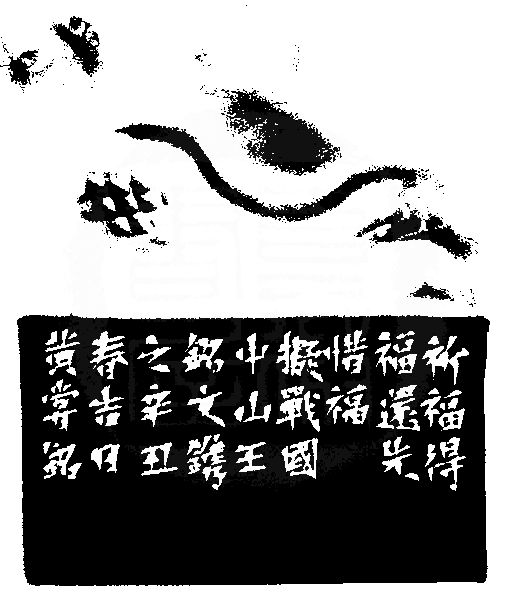 祈福得
福還先
惜福
擬戰國
中山王
銘文鐫
之辛丑
春吉日
黃嘗銘